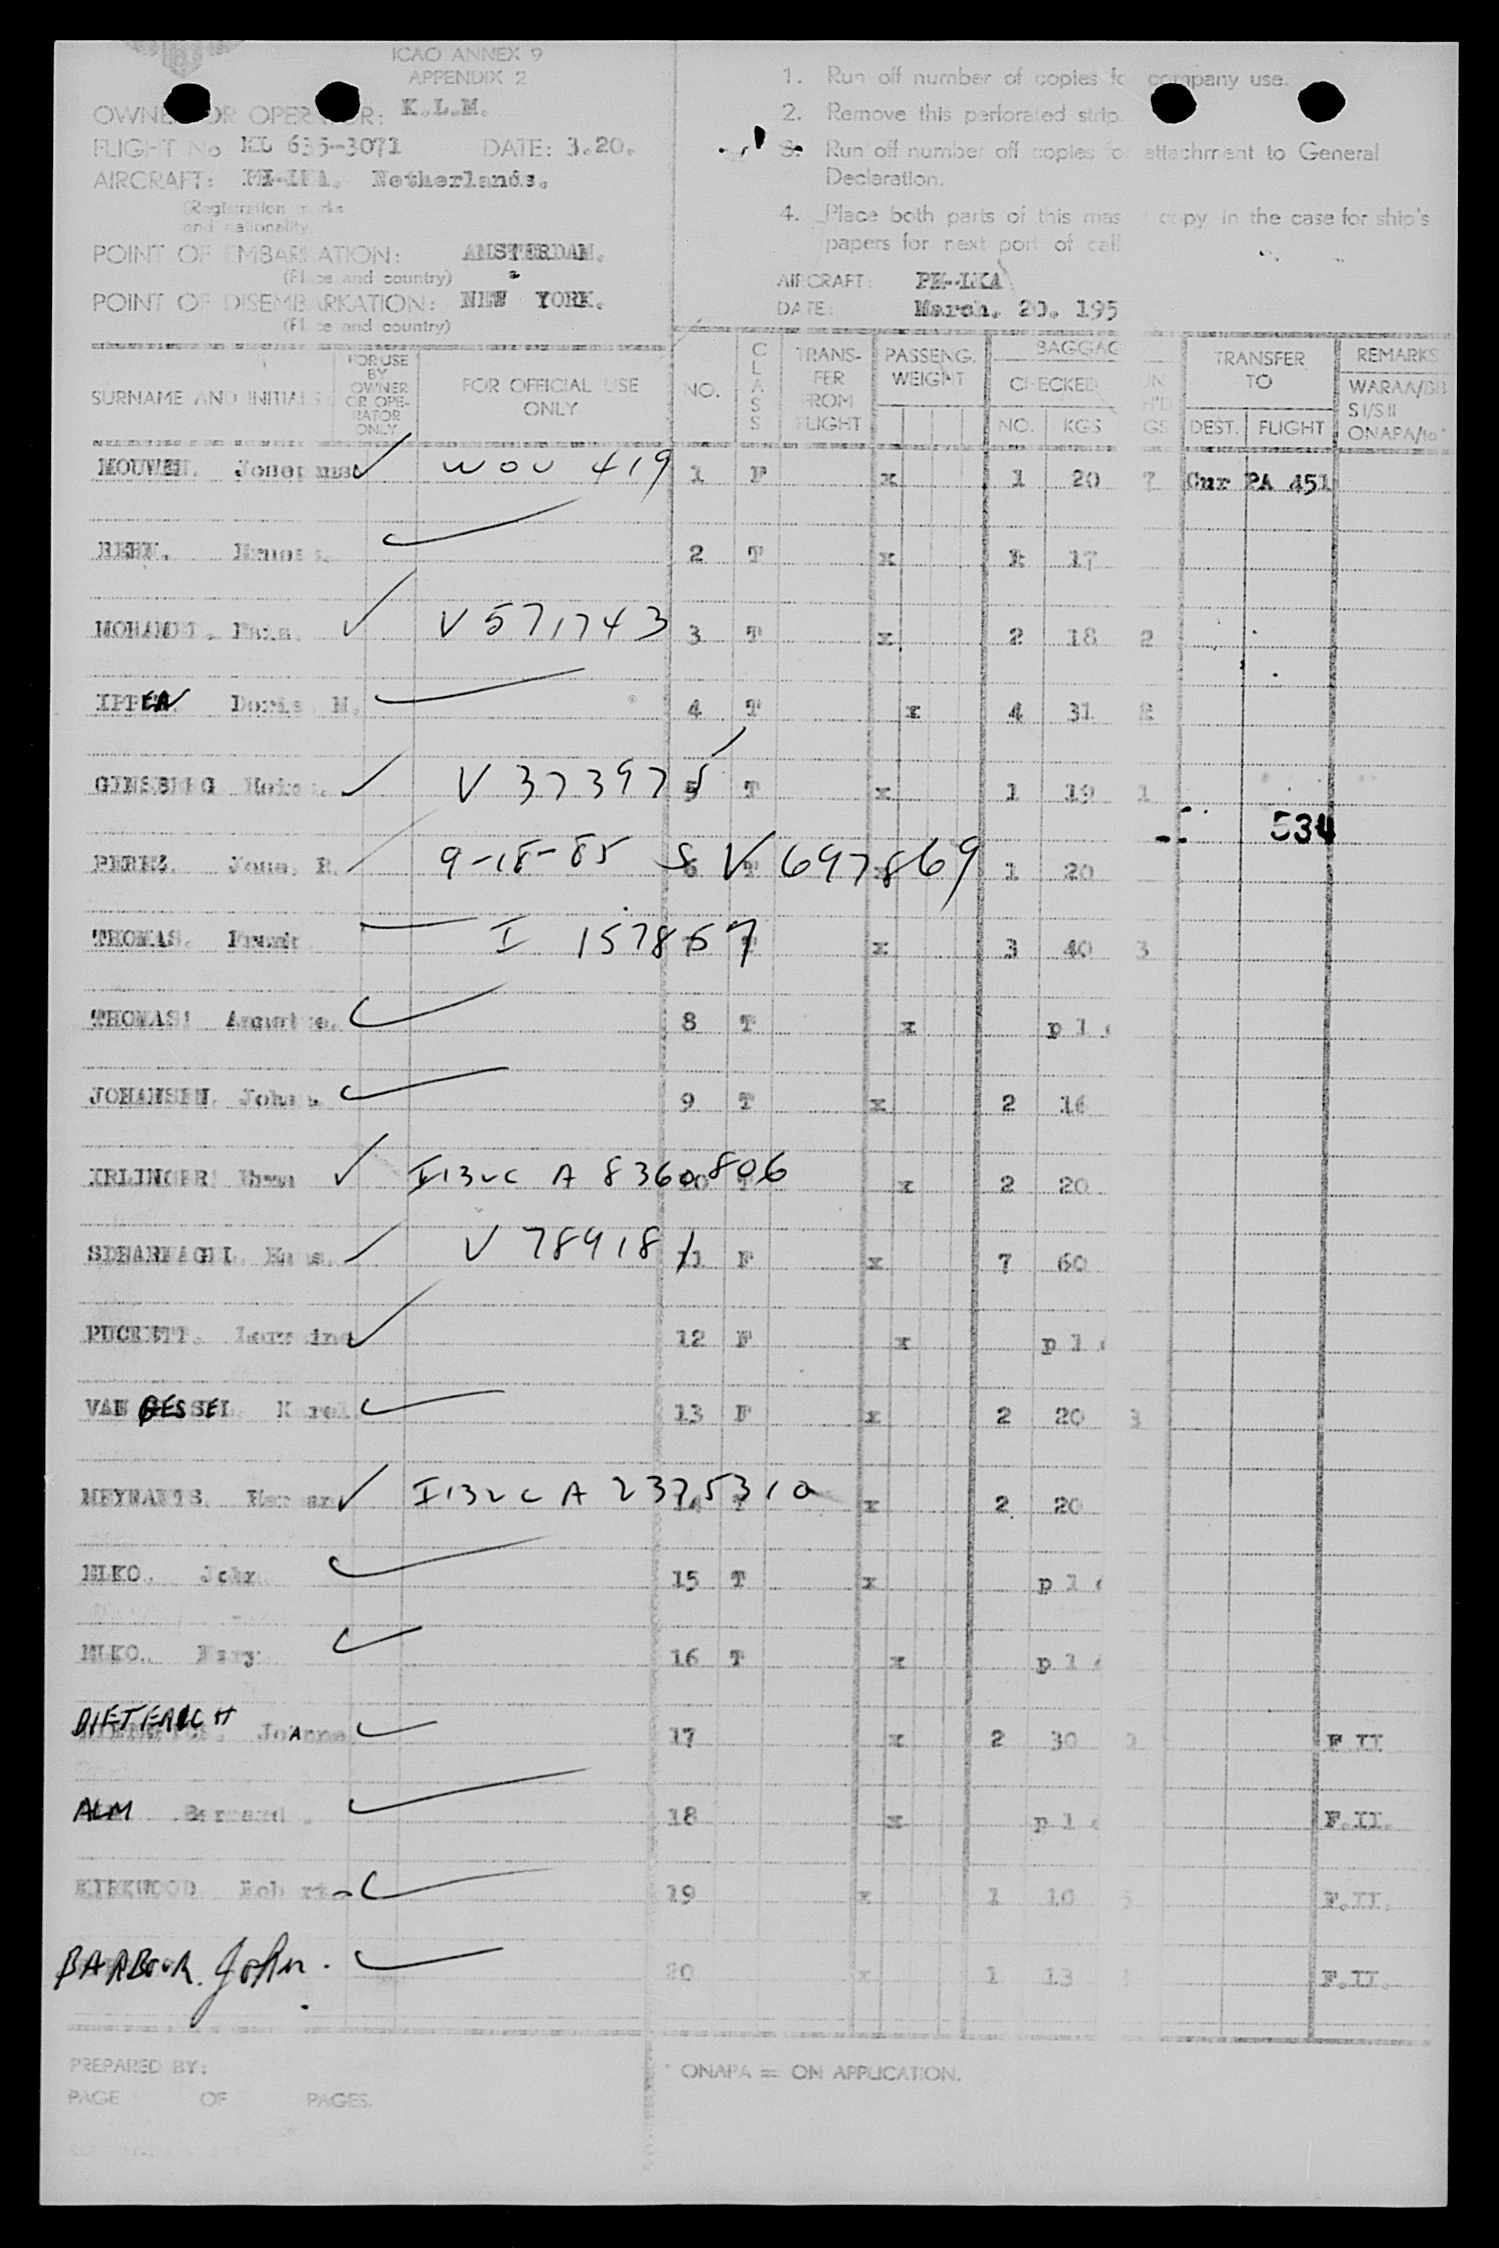 ICAO ANNEX 9
APPENDIX 2
OWNER OR OPERATOR: K.L.M.
FLIGHT No KL 635-3071 DATE: 3.20.
AIRCRAFT: Netherlands.
(Registration marks
and nationality
POINT OF EMBARKATION: AMSTERDAM.
(Place and country)
POINT OF DISEMBARKATION: NEW YORK.
(Place and country)
1. Run off number of copies for company use.
2. Remove this perforated strip.
3. Run off number off copies for attachment to General
Declaration.
4. Place both parts of this mas copy in the case for ship's
papers for next port of call
AIRCRAFT: PH-LKA
DATE: March. 20. 195
SURNAME AND INITIALS
FOR USE
BY
OWNER
OR OPE-
RATOR
ONLY
FOR OFFICIAL USE
ONLY
NO.
CLASS
TRANS-
FER
FROM
FLIGHT
PASSENG.
WEIGHT
BAGGAG
CHECKED
NO. KGS
UN
H'D
GS
TRANSFER
TO
DEST. FLIGHT
REMARKS
WARAA/BB
S I/S II
ONAPA/to*
MOUWEN. WOU 419 1 F x 1 20 7 Cur PA 451
2 T x 17
MOHAMED. V571743 3 T x 2 18 2
IPPEN Doris M. 4 T x 4 31 2
GINSBERG V 373975 5 T x 1 19 1
534
PEREZ. Jona, R. 9-18-85 S V 697869 6 T x 1 20
THOMAS. Frank I 157857 7 T x 3 40 3
THOMAS. 8 T x p l c
JOHANSEN. Johan 9 T x 2 16
IRLINGER I132C A 8360806 10 T x 2 20
V 789181 11 F x 7 60
PUCKETT. Lorraine 12 F x p l c
VAN GESSEL. Karel 13 F x 2 20 3
I132C A 2375310 14 T x 2 20
ELKO. John 15 T x p l c
ELKO. Mary 16 T x p l c
DIETERICH Johanna 17 x 2 30 F II
ALM Bernard 18 x p l c F.II.
KIRKWOOD Robert 19 x 1 10 F.II.
BARBOUR. John. 20 x 1 13 F.II.
PREPARED BY:
PAGE OF PAGES.
* ONAPA = ON APPLICATION.